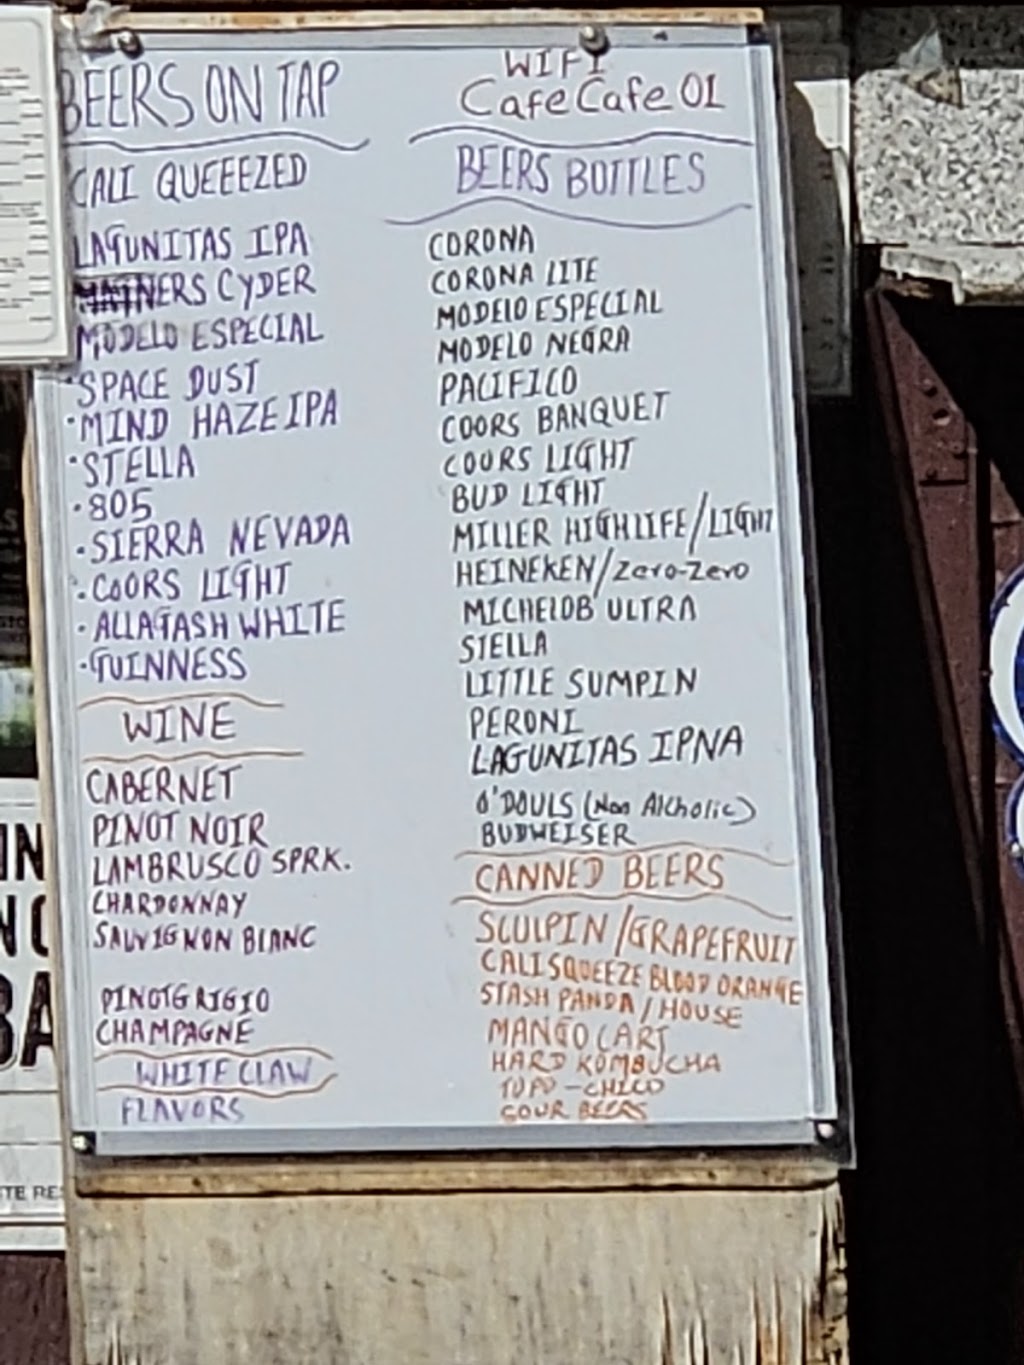 BEERS ON TAP
CALI QUEEEZED
LAGUNITAS IPA
NERS CYDER
MODELO ESPECIAL
·SPACE DUST
·MIND HAZE IPA
·STELLA
·805
·SIERRA NEVADA
·COORS LIGHT
·ALLAGASH WHITE
·GUINNESS
WINE
CABERNET
PINOT NOIR
LAMBRUSCO SPRK.
CHARDONNAY
SAUVIGNON BLANC
PINOTGRIGIO
CHAMPAGNE
WHITE CLAW
FLAVORS
WIFI
CafeCafe01
BEERS BOTTLES
CORONA
CORONA LITE
MODELO ESPECIAL
MODELO NEGRA
PACIFICO
COORS BANQUET
COORS LIGHT
BUD LIGHT
MILLER HIGHLIFE/LIGHT
HEINEKEN/Zero-Zero
MICHELOB ULTRA
STELLA
LITTLE SUMPIN
PERONI
LAGUNITAS IPNA
O'DOULS (Non Alcholic)
BUDWEISER
CANNED BEERS
SCULPIN/GRAPEFRUIT
CALISQUEEZE BLOOD ORANGE
STASH PANDA/HOUSE
MANGO CART
HARD KOMBUCHA
TOPO-CHICO
SOUR BEERS